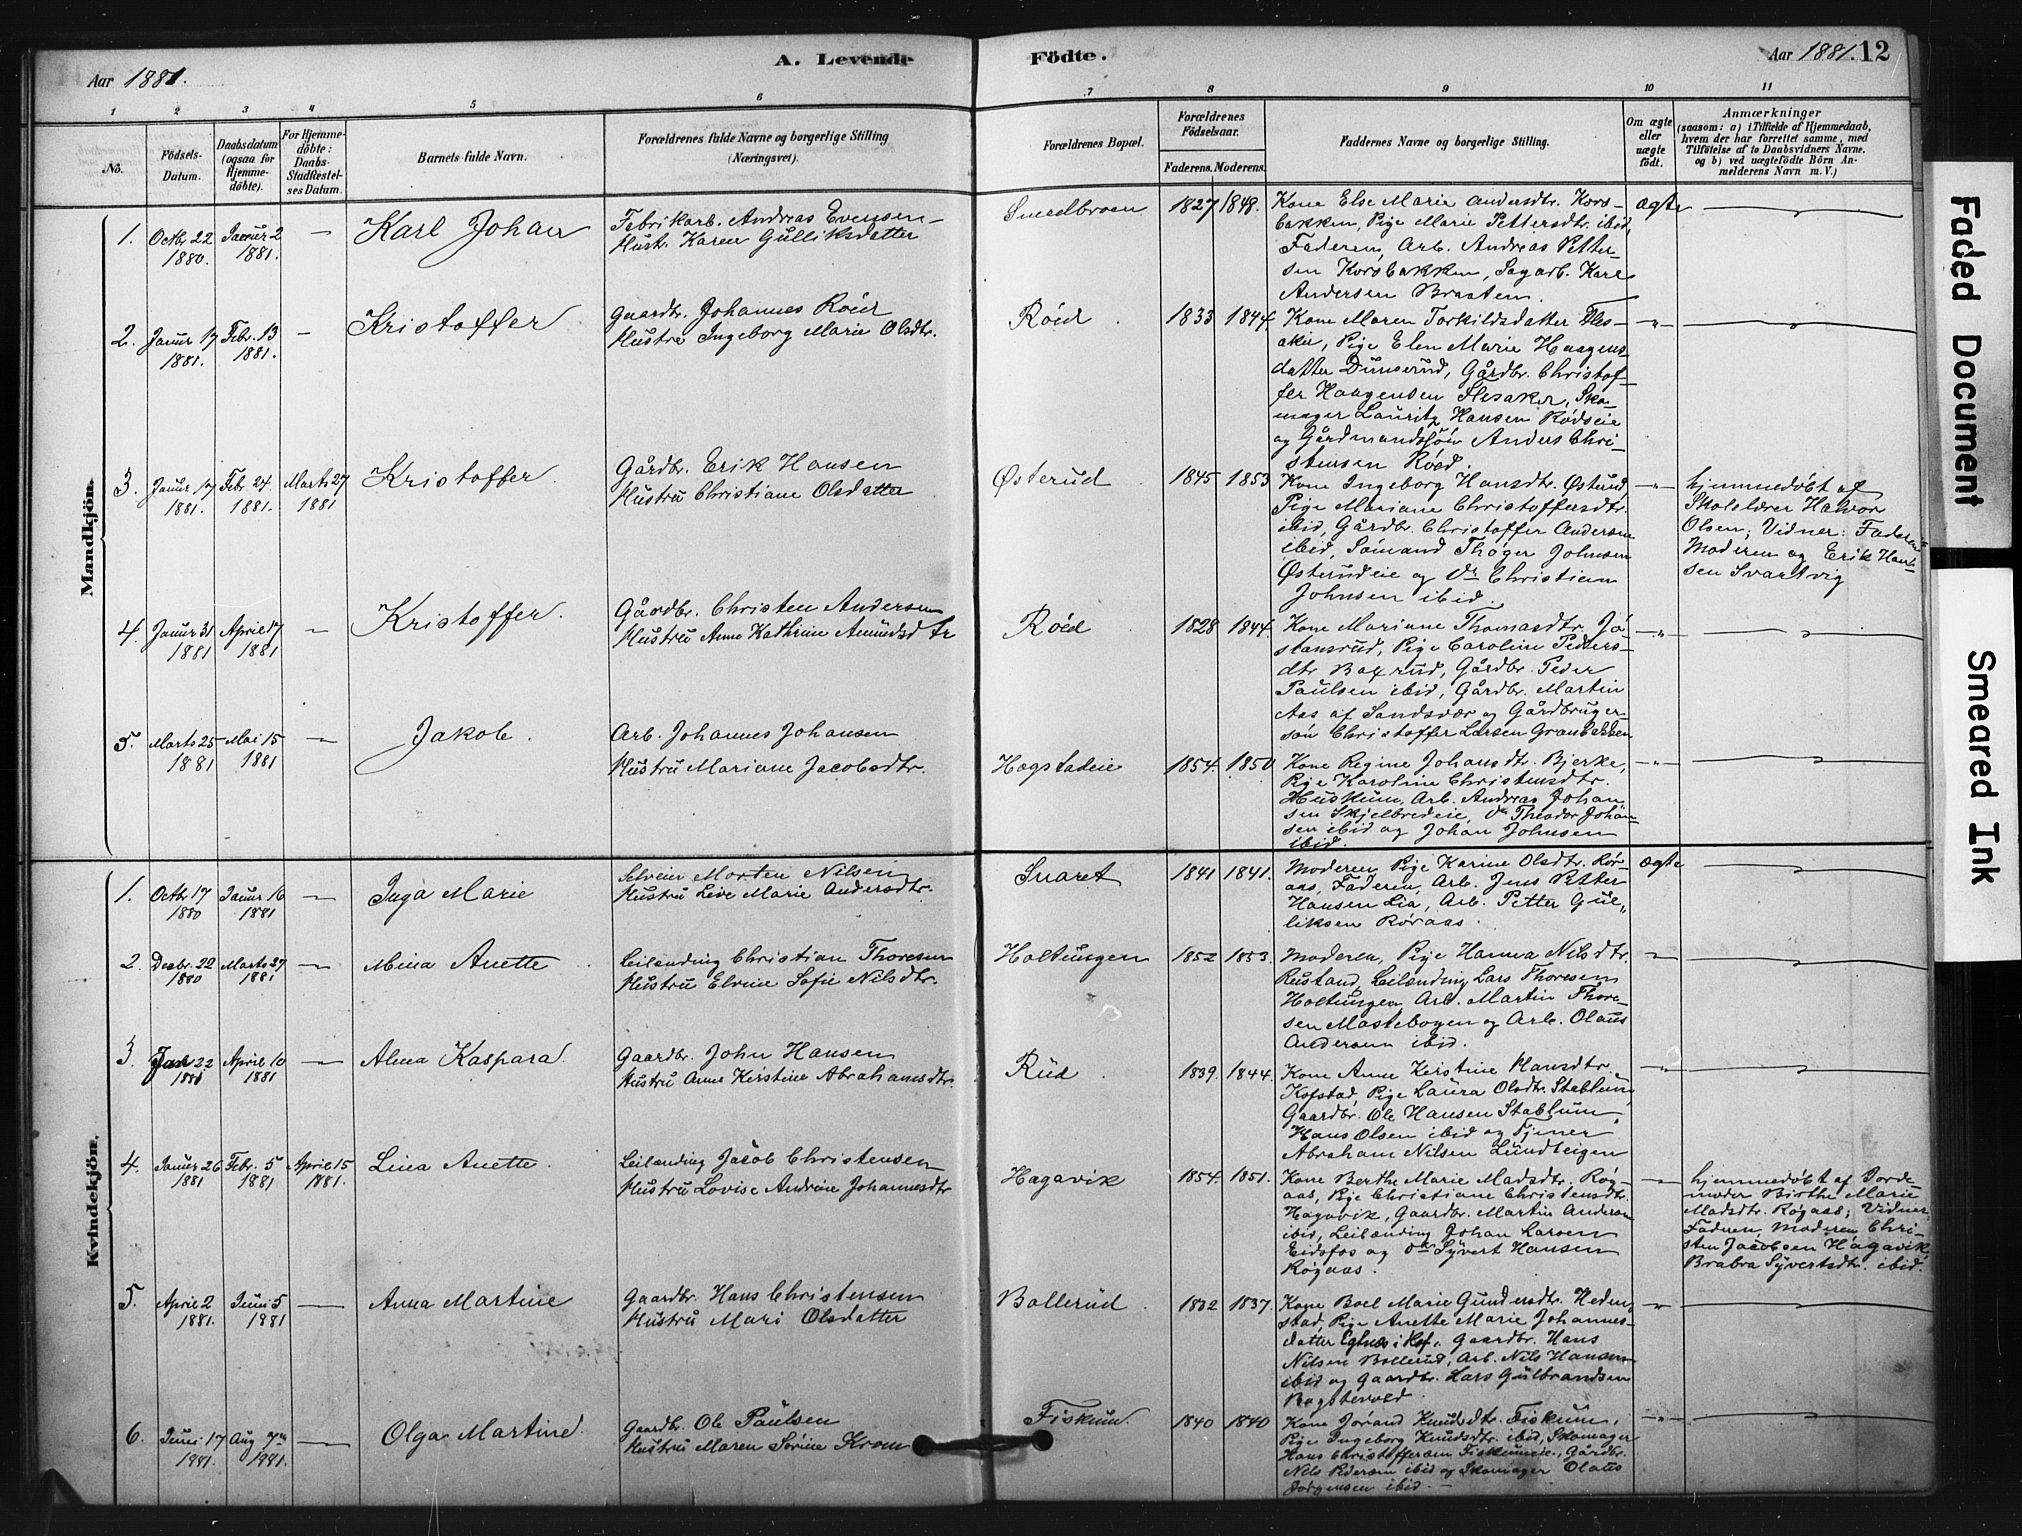 Aar 1881.
A. Levende
Födte.
Aar 1881. 12
1 2 3 4 5 6 7 8 9 10 11
No.
Födsels-
Datum.
Daabsdatum
(ogsaa for
Hjemme-
döbte).
For Hjemme-
döbte:
Daabs-
Stadfæstel-
ses Datum.
Barnets fulde Navn.
Forældrenes fulde Navne og borgerlige Stilling
(Næringsvei).
Forældrenes Bopæl.
Forældrenes
Födselsaar.
Faderens. Moderens.
Faddernes Navne og borgerlige Stilling.
Om ægte
eller
uægte
födt.
Anmærkninger
(saasom: a) i Tilfælde af Hjemmedaab,
hvem der har forrettet samme, med
Tilföielse af to Daabsvidners Navne,
og b) ved uægtefödte Börn An-
melderens Navn m. V.)
Mandkjön.
1. Octbr 22 1880. Januar 2 1881. — Karl Johan
Fabrikarb. Andreas Evensen
Hust. Karen Gulliksdatter
1827 1848.
Kone Else Marie Andersdtr. Kors-
bakken, Pige Marie Pettersdtr. ibid,
Faderen, Arb. Andreas Petter-
sen Korsbakken, Sagarb. Karl
Andersen Braaten.
ægte
2. Januar 17 1881. Febr. 13 1881. — Kristoffer
Gaardbr. Johannes Röed
Hustru Ingeborg Marie Olsdtr.
Röed
1833 1844.
Kone Maren Torkildsdatter Fles-
aker, Pige Elen Marie Haagens-
datter Dunserud, Gårdbr. Christof-
fer Haagensen Flesaker, Sko-
mager Lauritz Hansen Rödseie
og Gårdmandssön Anders Chri-
stensen Röed.
3. Januar 17 1881. Febr. 24. 1881. Marts 27 1881 Kristoffer
Gårdbr. Erik Hansen
Hustru Christiane Olsdatter
Østerud
1845 1853
Kone Ingeborg Hansdtr. Østerud,
Pige Mariane Christoffersdtr.
ibid, Gårdbr. Christoffer Andersen
ibid, Sömand Thöger Johnsen
Østerudeie og Dr Christian
Johnsen ibid.
hjemmedöbt af
Skolelærer Halvor
Olsen; Vidner: Faderen
Moderen og Erik Han-
sen Svartvig
4. Januar 31 1881 April 17 1881 — Kristoffer.
Gårdbr. Christen Andersen
Hustru Anne Kathrine Amundsdtr
Röed
1828 1844.
Kone Mariane Thomasdtr. Jö-
stansrud, Pige Caroline Peders-
dtr Baxrud, Gårdbr. Peder
Paulsen ibid, Gårdbr. Martin
Aas af Sandsvær og Gårdbruger-
sön Christoffer Larsen Granbakken
5. Marts 25 1881 Mai 15 1881 — Jakob.
Arb. Johannes Johansen
Hustru Mariane Jacobsdtr.
Hægstadeie
1854. 1850
Kone Regine Johansdtr. Bjerke,
Pige Karoline Christensdtr.
Arb. Andreas Johan
sen Skjelbredeie, Theodor Johan-
sen ibid og Johan Johnsen
ibid.
Kvindekjön.
1. Octbr 17 1880 Januar 16 1881 — Inga Marie
Selveier Morten Nilsen
Hustru Live Marie Andersdtr.
Snaret
1841 1841.
Moderen, Pige Karine Olsdtr. Rör-
aas, Faderen, Arb. Jens Petter
Hansen Lia, Arb. Petter Gul-
liksen Röraas.
ægte
2. Decbr. 22 1880 Marts 27 1881 — Mina Anette
Leilænding Christian Thoresen
Hustru Elvine Sofie Nilsdtr.
Holtungen
1852 1853.
Moderen, Pige Hanna Nilsdtr.
Rustand, Leilænding Lars Thoresen
Holtungen Arb. Martin Thore-
sen Mastebogen og Arb. Olaus
Andersen ibid.
3. Jan 22 1881 April 10 1881 — Alma Kaspara
Gaardbr. John Hansen
Hustru Anne Kirstine Abrahamsdtr.
Rud
1839. 1844.
Kone Anne Kirstine Hansdtr.
Kofstad, Pige Laura Olsdtr. Stablum,
Gaardbr. Ole Hansen Stablum,
Hans Olsen ibid og Tjener
Abraham Nilsen Lundteigen
4. Januar 26 1881 Febr. 5 1881 April 15 1881. Lina Anette.
Leilænding Jacob Christensen
Hustru Lovise Andrine Johannesdtr
Hagavik
1854. 1851.
Kone Berthe Marie Madsdtr. Røg-
aas, Pige Christiane Christensdtr.
Hagavik, Gaardbr. Martin Andersen
ibid, Leilænding Johan Larsen
Eidsfos og do Syvert Hansen
Røgaas.
hjemmedöbt af Jorde-
moder Birthe Marie
Madsdtr. Røgaas; Vidner:
Faderen, Moderen, Chri-
sten Jacobsen Hagavik,
Brabra Syvertsdtr. ibid.
5. April 2 1881. Juni 5 1881 — Anna Martine
Gaardbr. Hans Christensen
Hustru Mari Olsdatter
Bollerud
1832 1837.
Kone Boel Marie Gundersdtr. Heden-
stad, Pige Anette Marie Johannes-
datter Egtnes i Hof, Gaardbr. Hans
Nilsen Bollerud, Arb. Nils Hansen
ibid og Gaardbr. Lars Gulbrandsen
6. Juni 17 1881. Aug 7de 1881. — Olga Martine
Gaardbr. Ole Paulsen
Hustru Maren Sørine Krom
Fiskum.
1840 1840
Kone Jorand Knudsdtr. Fiskum,
Pige Ingeborg Knudsdtr. ibid, Skomager
Hans Christoffersen Fiskumeie, Gårdbr.
Nils Pedersen ibid og Skomager Olaus
Jörgensen ibid. —
Faded Document
Smeared Ink